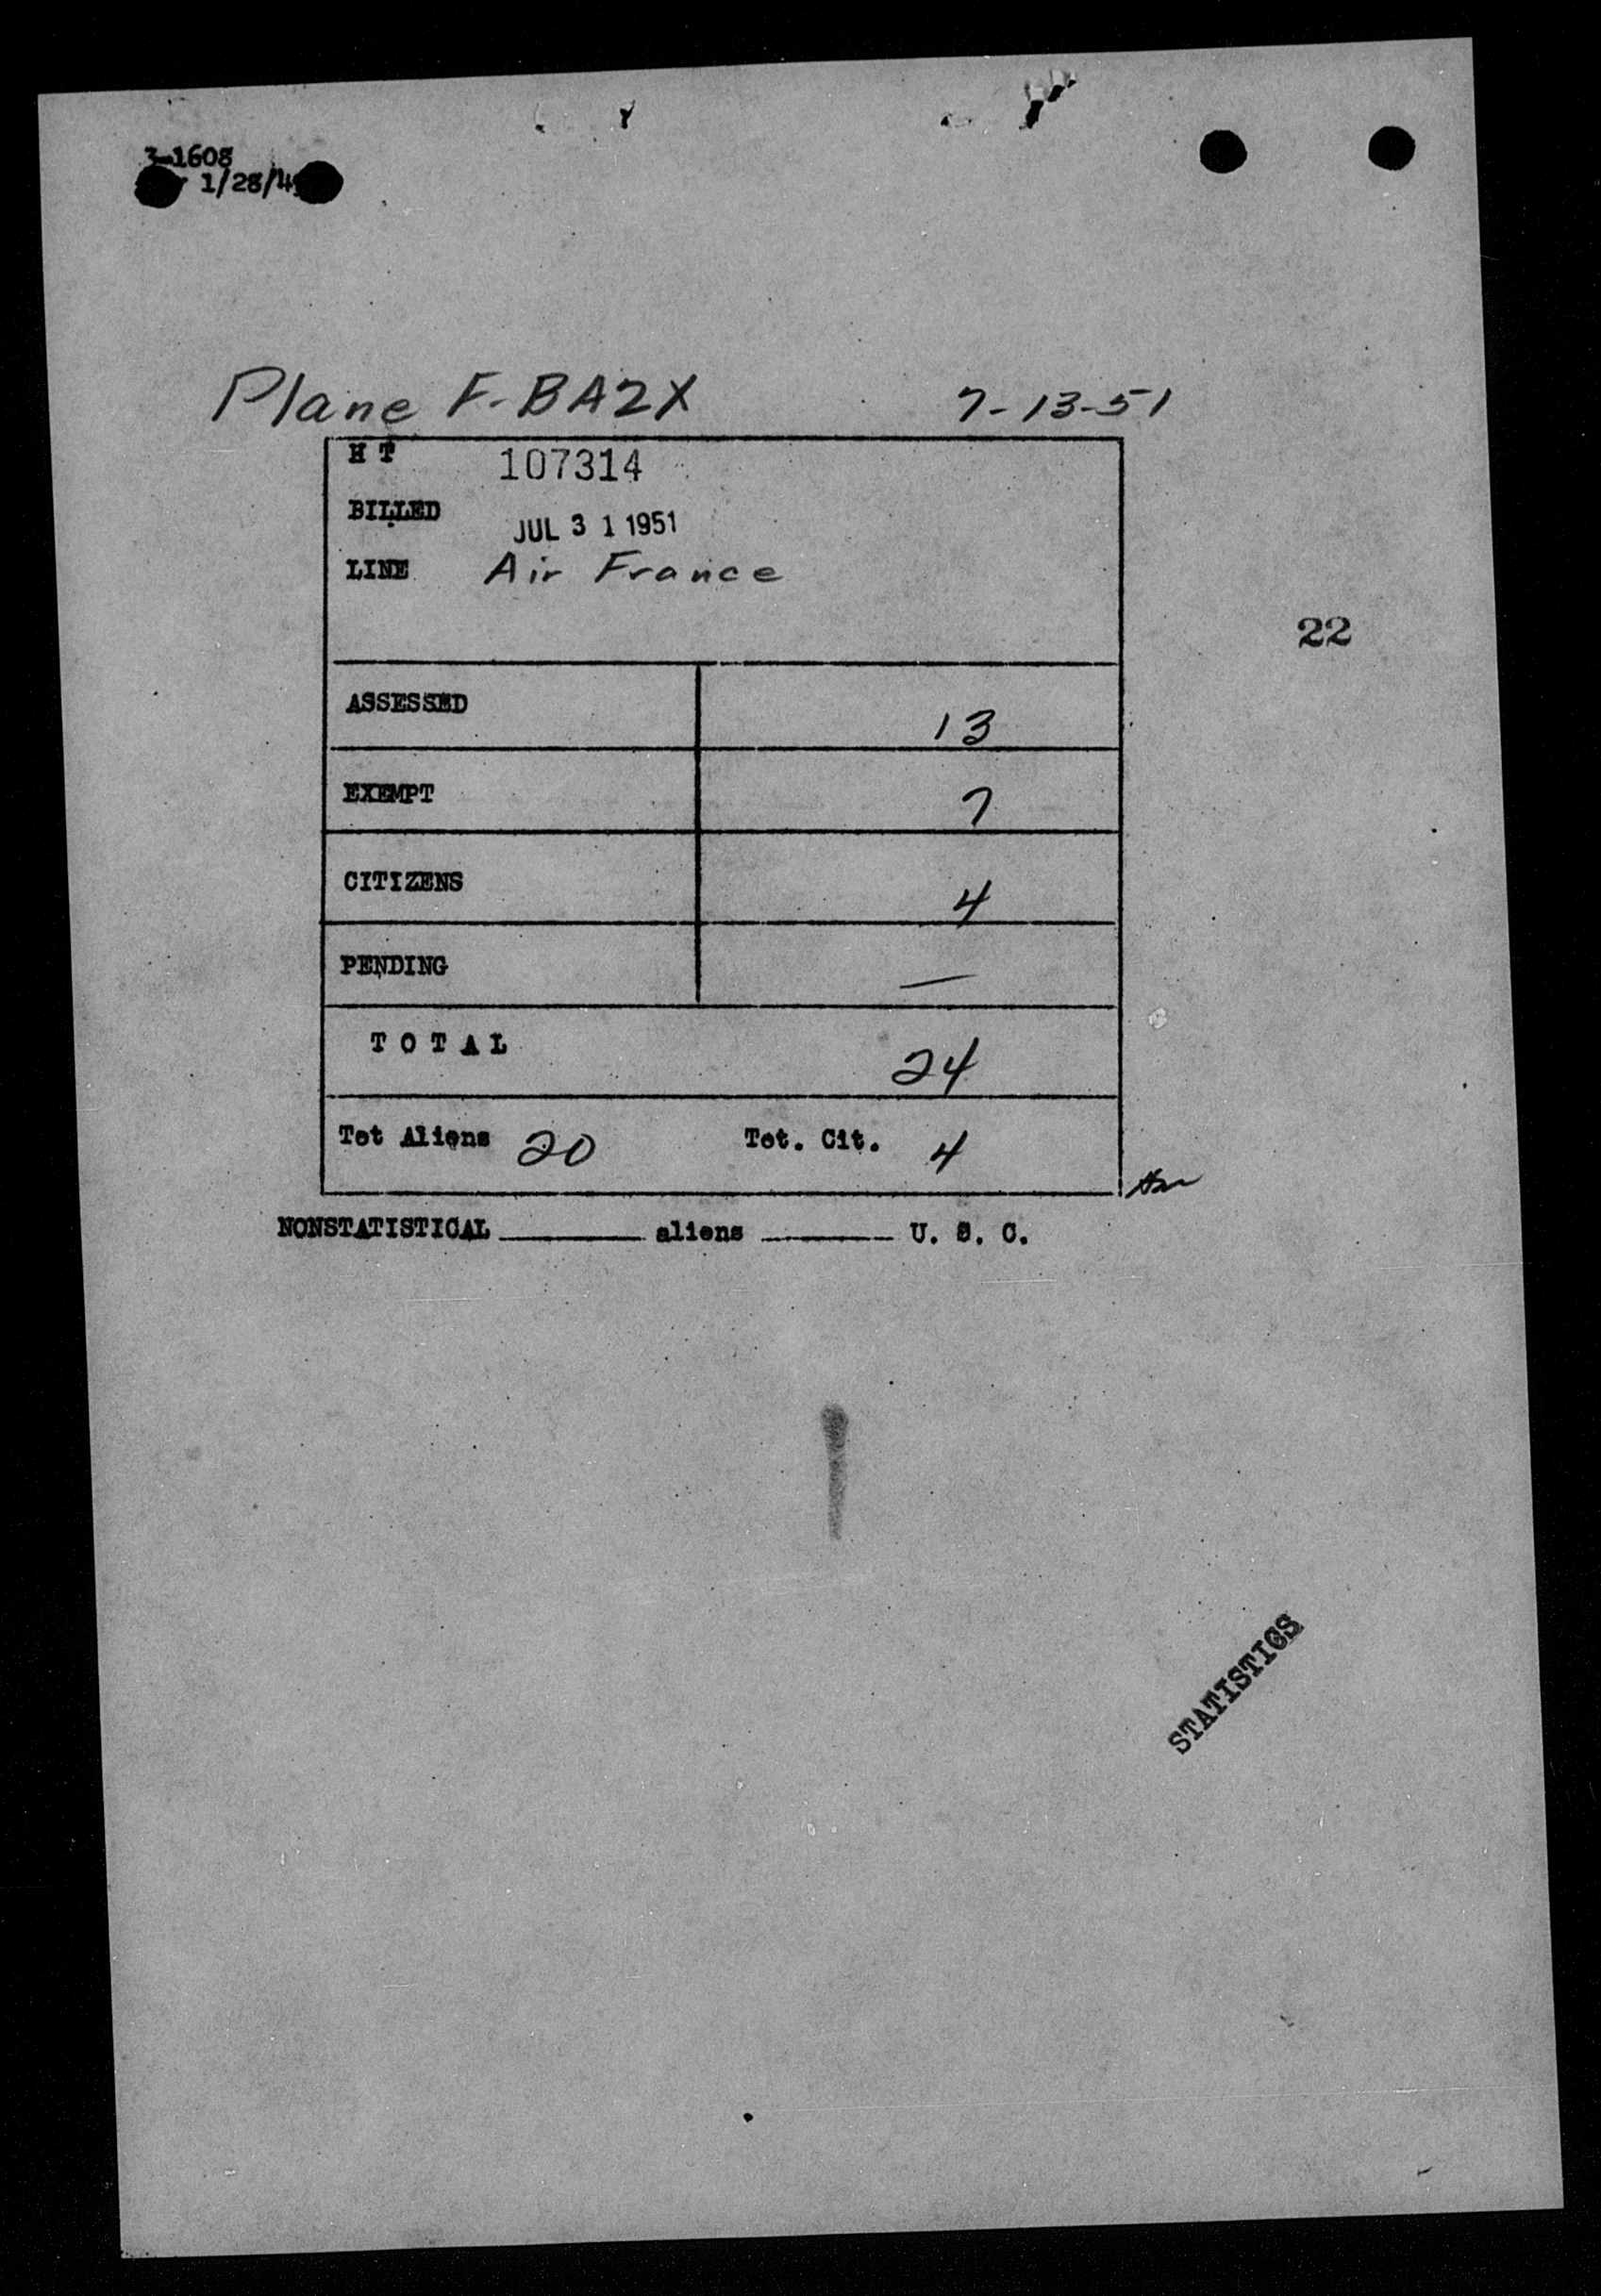 3-1608
1/28/4
Plane F-BA2X 7-13-51
H T 107314
BILLED JUL 3 1 1951
LINE Air France
22
ASSESSED 13
EXEMPT 7
CITIZENS 4
PENDING —
TOTAL 24
Tot Aliens 20 Tot. Cit. 4
NONSTATISTICAL ______ aliens ______ U. S. C.
STATISTICS